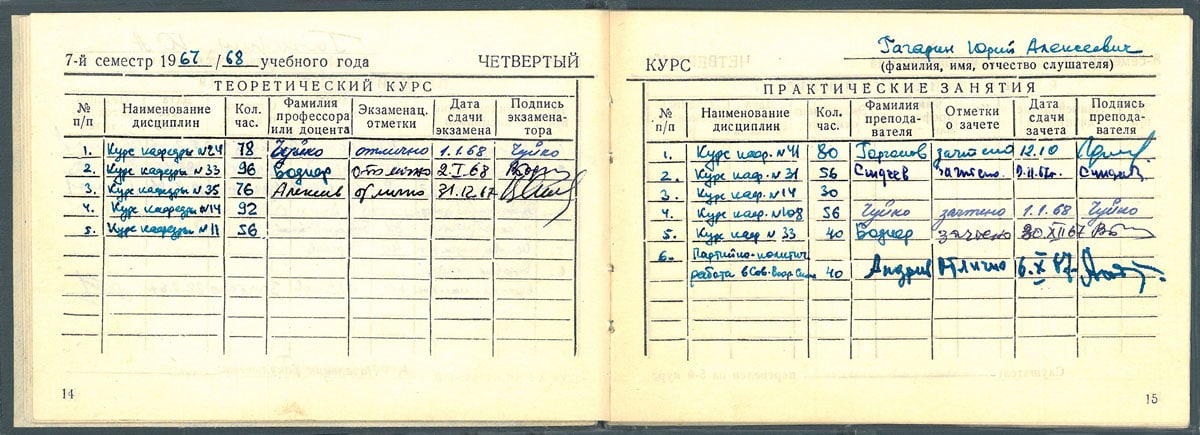 7-й семестр 1967/68 учебного года ЧЕТВЕРТЫЙ
ТЕОРЕТИЧЕСКИЙ КУРС
№ п/п Наименование дисциплин Кол. час. Фамилия профессора или доцента Экзаменац. отметки Дата сдачи экзамена Подпись экзаменатора
1. Курс кафедры №24 78 Чуйко отлично 1.1.68 Чуйко
2. Курс кафедры №33 96 Боднер отлично 2.I.68
3. Курс кафедры №35 76 Алексеев отлично 31.12.67
4. Курс кафедры №14 92
5. Курс кафедры №11 56
14
Гагарин Юрий Алексеевич
КУРС (фамилия, имя, отчество слушателя)
ПРАКТИЧЕСКИЕ ЗАНЯТИЯ
№ п/п Наименование дисциплин Кол. час. Фамилия преподавателя Отметки о зачете Дата сдачи зачета Подпись преподавателя
1. Курс каф. №41 80 зачтено 12.10
2. Курс каф. №31 56 зачтено
3. Курс каф. №14 30
4. Курс каф. №108 56 Чуйко зачтено 1.1.68 Чуйко
5. Курс каф №33 40 Боднер зачтено 30 XII 67
6. Партийно-политич.
работа в Сов. Воор. Силах 40 отлично 6.X 67
15